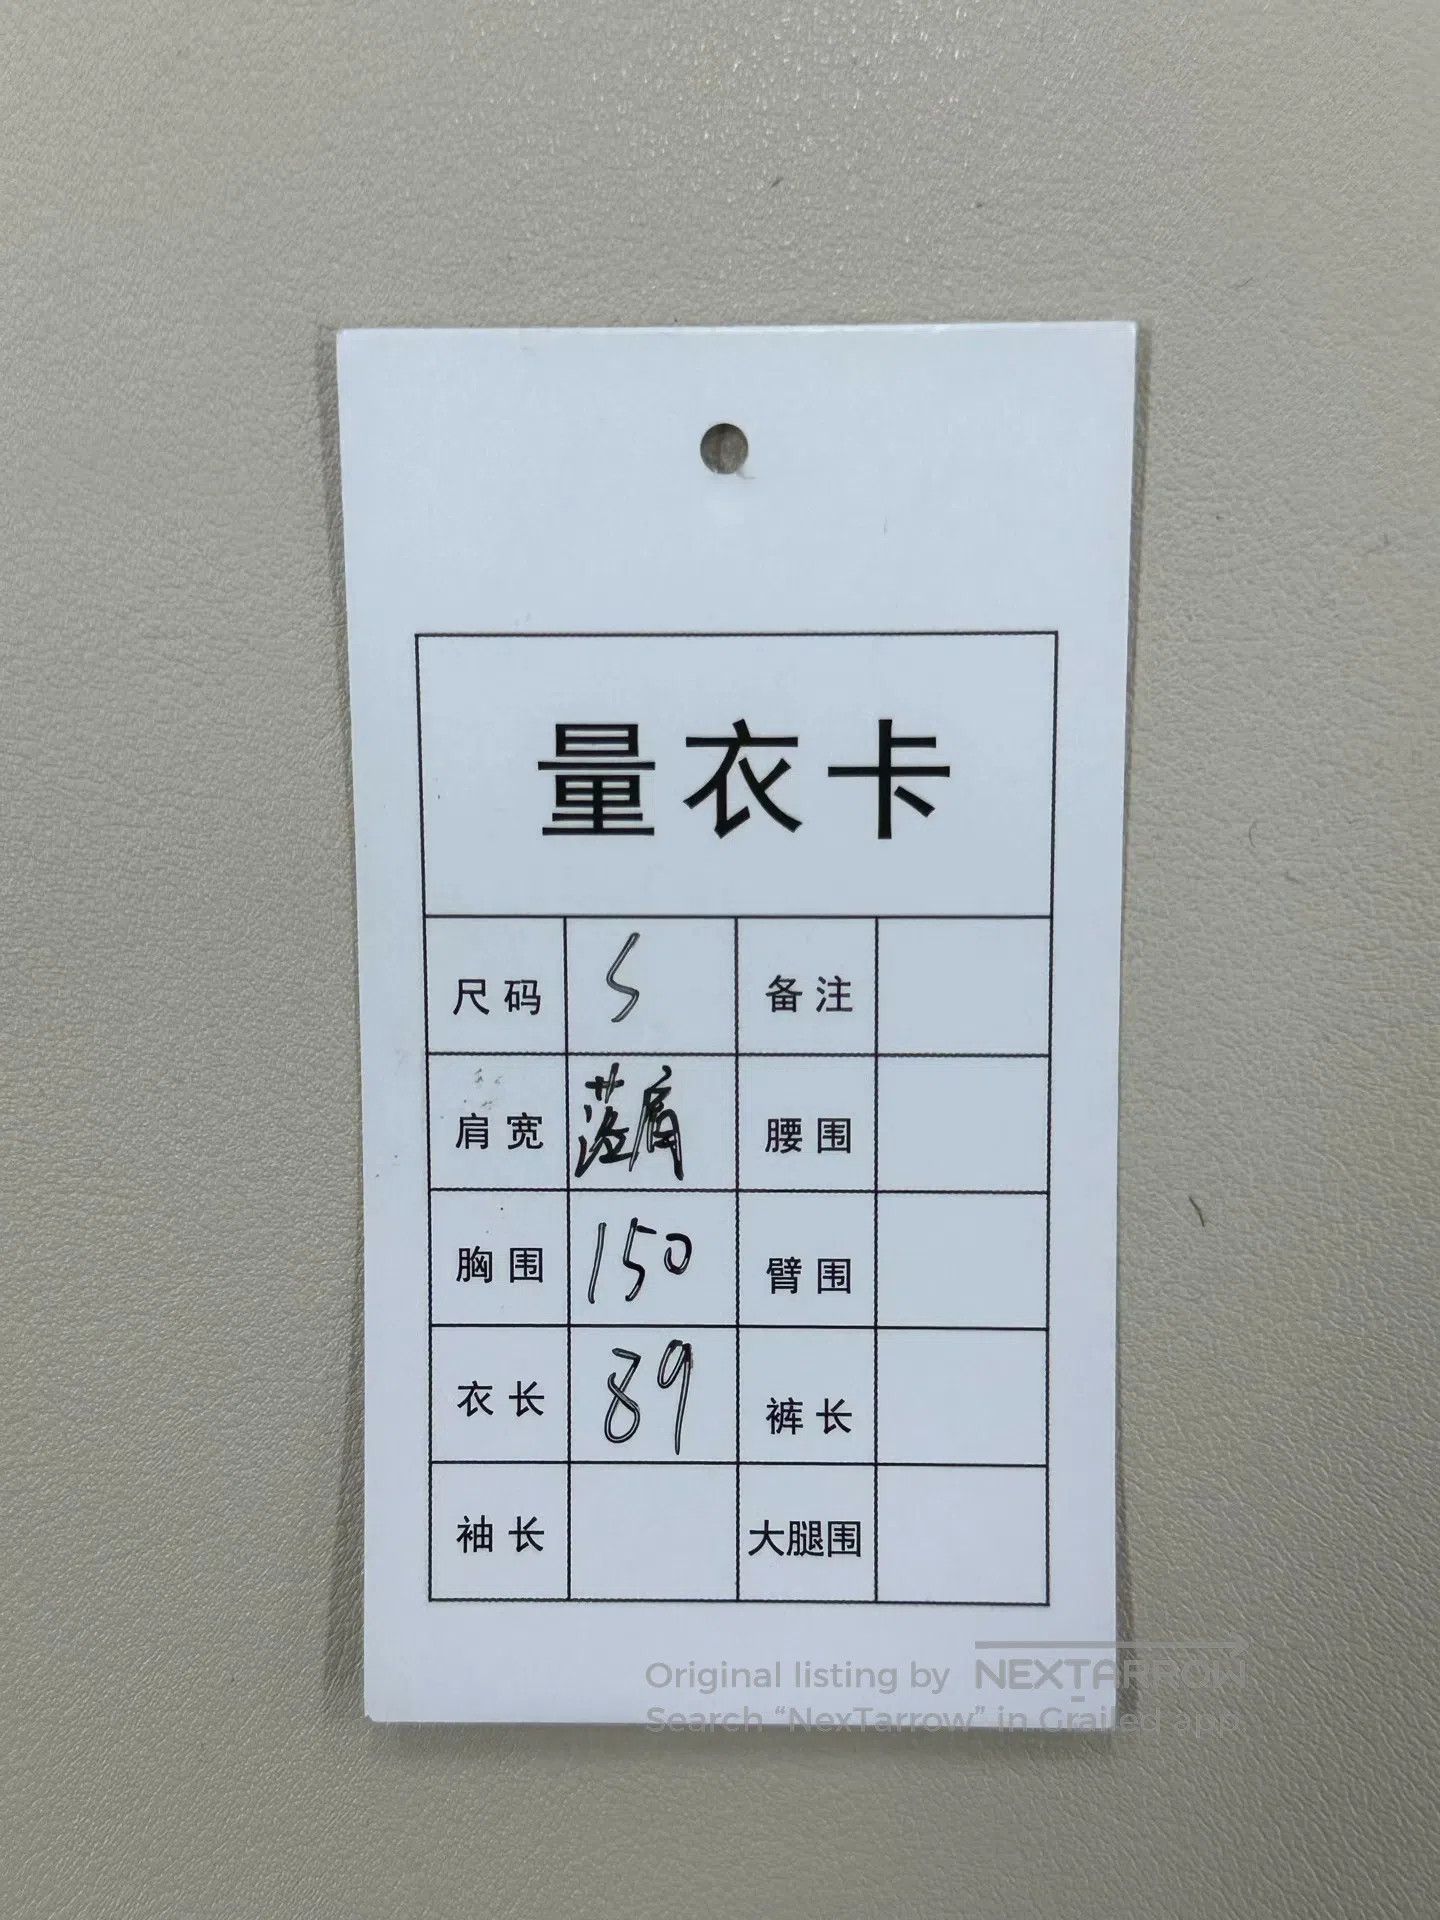 量衣卡
尺码 S 备注
肩宽 落肩 腰围
胸围 150 臂围
衣长 89 裤长
袖长 大腿围
Original listing by NEXTARROW
Search “NexTarrow” in Grailed app